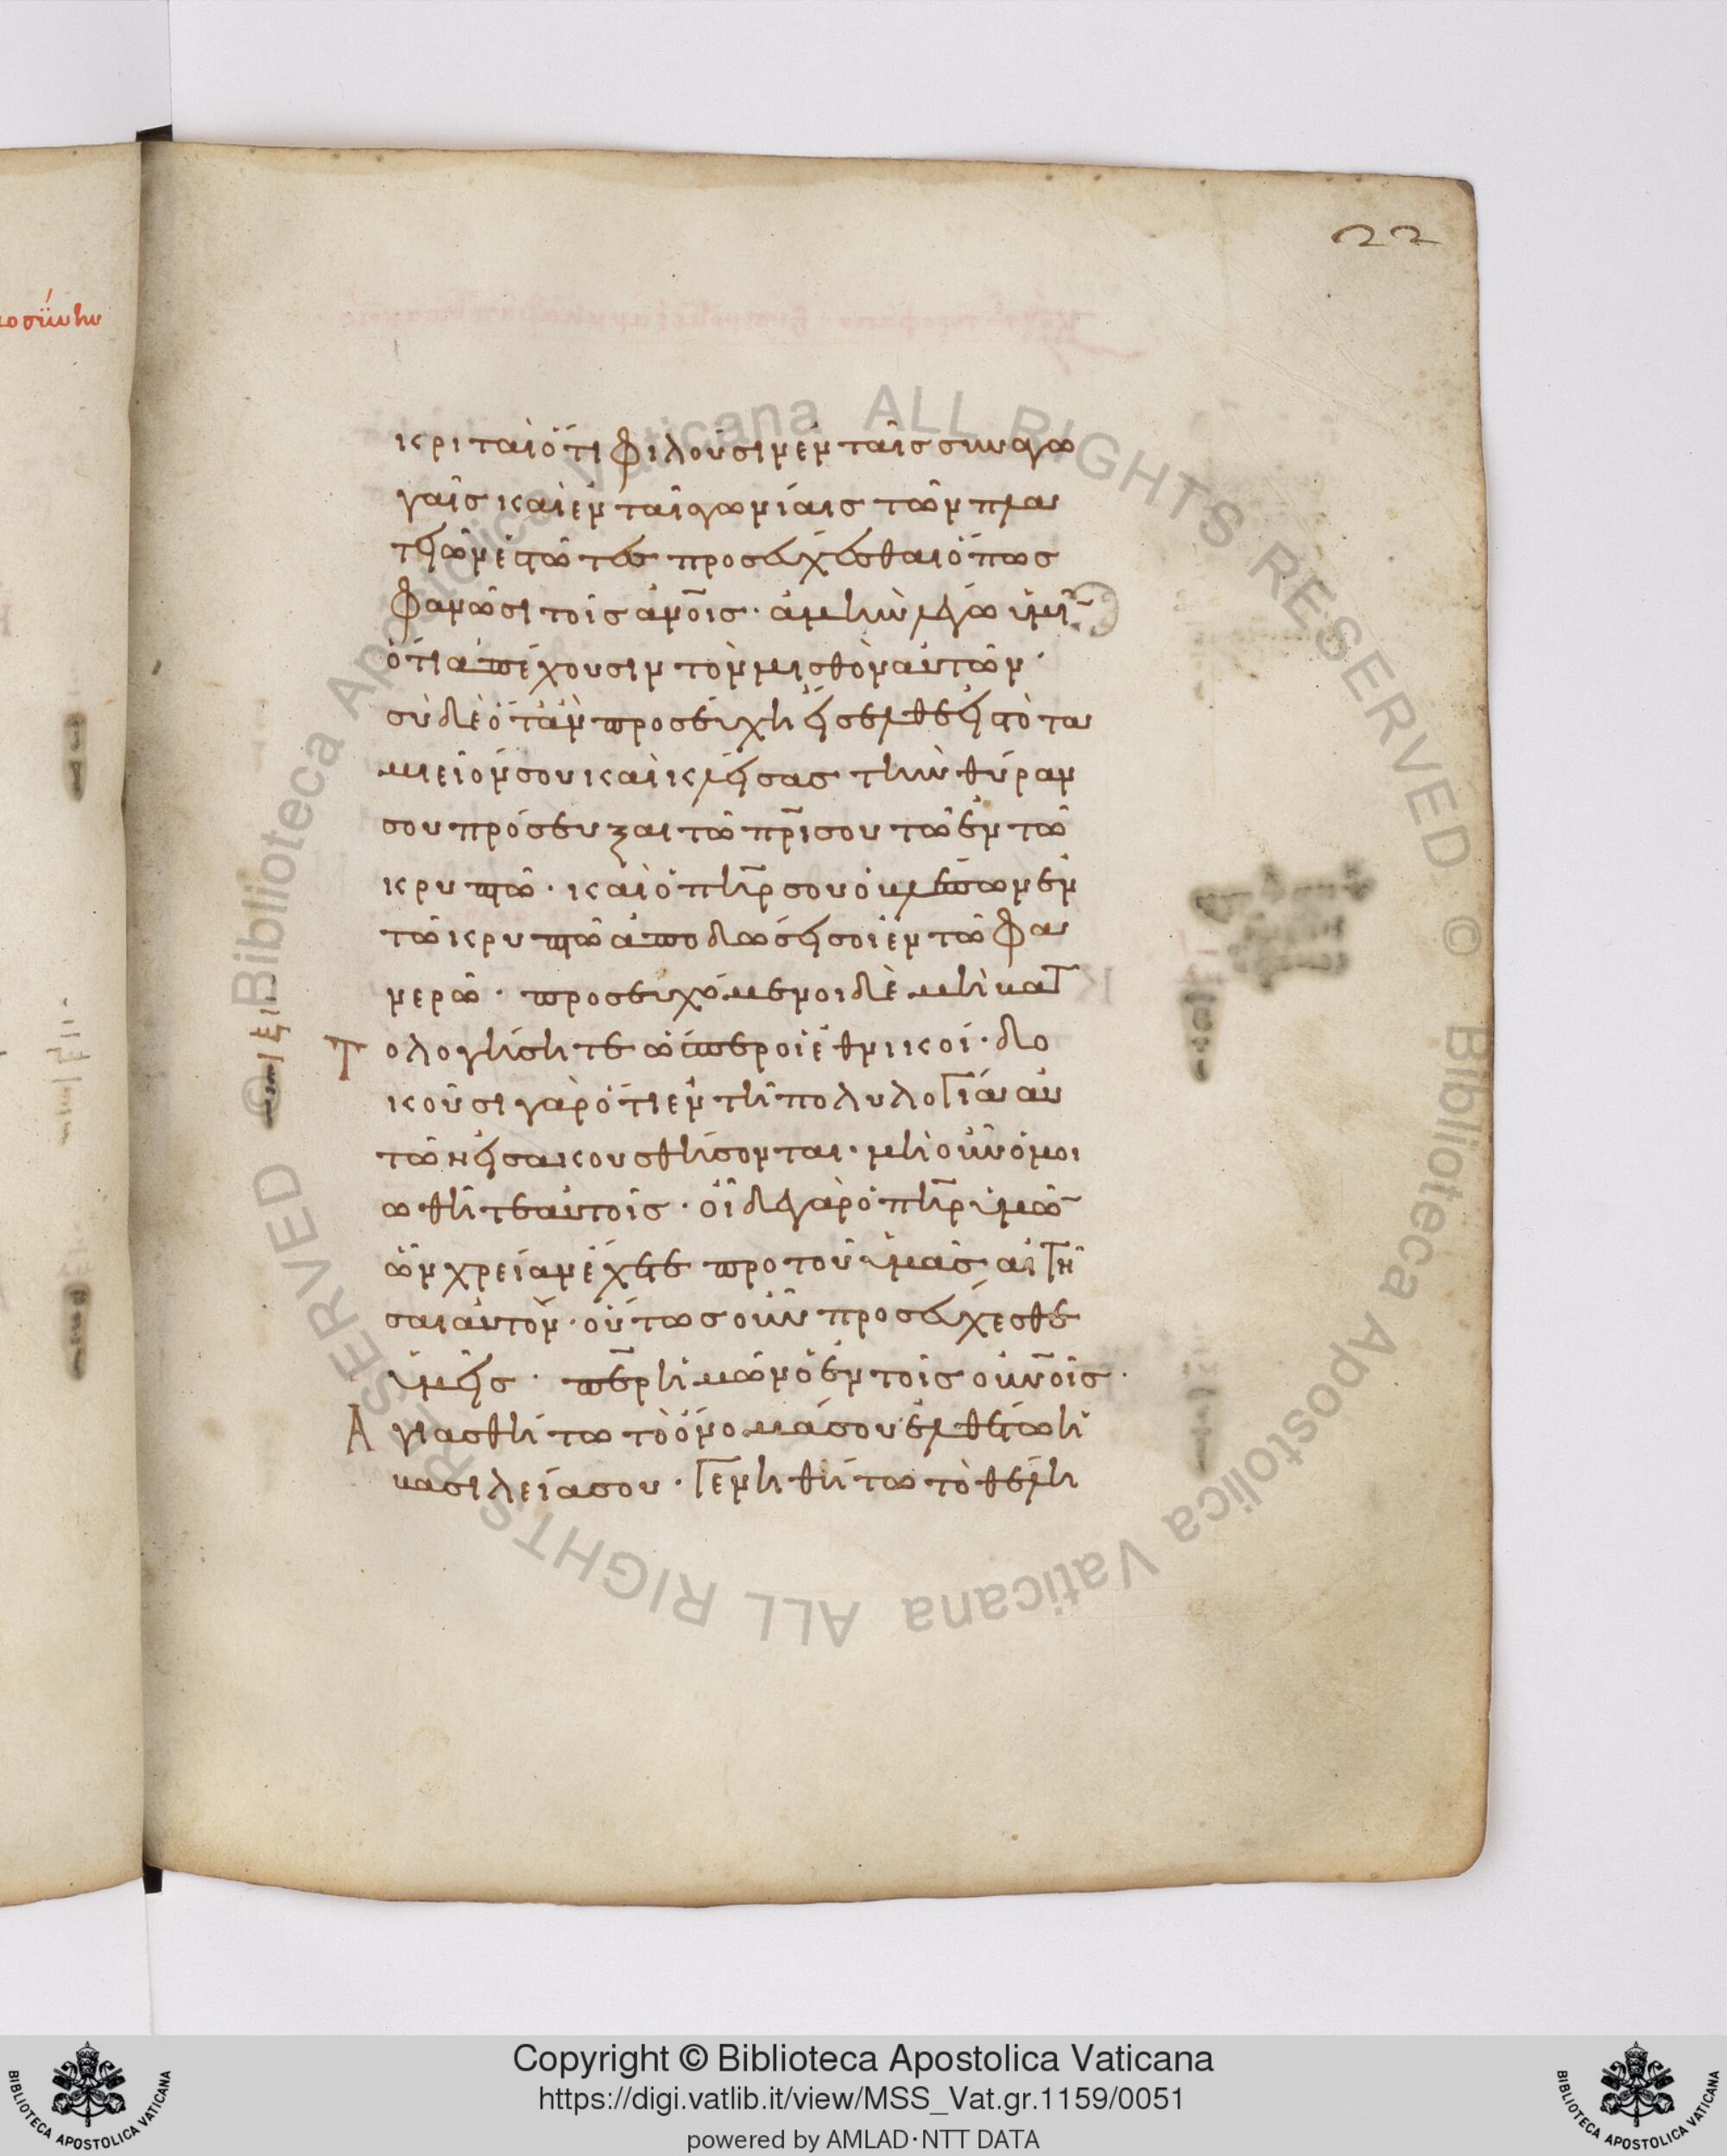 22
κριταὶ ὅτι φιλοῦσιν ἐν ταῖς συναγω
γαῖς καὶ ἐν ταῖ γωνίαις τῶν πλα
τειῶν ἑστῶτες προσεύχεσθαι ὅπως
φανῶσι τοῖς ἀνοις· ἀμὴν λέγω ὑμῖ
ὅτι ἀπέχουσιν τὸν μισθὸν αὐτῶν·
σὺ δὲ ὅταν προσεύχη εἴσελθε εἰς τὸ τα
μιεῖόν σου καὶ κλείσας τὴν θύραν
σου πρόσευξαι τῶ πρι σου τῶ ἐν τῶ
κρυπτῶ· καὶ ὁ πηρ σου ὁ βλέπων ἐν
τῶ κρυπτῶ ἀποδώσει σοι ἐν τῶ φα
νερῶ· προσευχόμενοι δὲ μὴ βατ
Τολογήσητε ὥσπερ οἱ ἐθνικοί· δο
κοῦσι γὰρ ὅτι ἐν τῆ πολυλογία αὐ
τῶν εἰσακουσθήσονται· μὴ οὖν ὁμοι
ωθῆτε αὐτοῖς· οἶδε γὰρ ὁ πηρ ὑμῶ
ὧν χρείαν ἔχετε προ τοῦ ὑμᾶς αἰτῆ
σαι αὐτόν· οὕτως οὖν προσεύχεσθε
ὑμεῖς· περ ἡμῶν ὁ ἐν τοῖς οὐνοῖς·
Αγιασθήτω τὸ ὄνομά σου ἐλθέτω ἡ
βασιλεία σου· γενηθήτω τὸ θέλη
Copyright © Biblioteca Apostolica Vaticana
https://digi.vatlib.it/view/MSS_Vat.gr.1159/0051
powered by AMLAD·NTT DATA
BIBLIOTECA APOSTOLICA VATICANA
BIBLIOTECA APOSTOLICA VATICANA
© Biblioteca Apostolica Vaticana ALL RIGHTS RESERVED
© Biblioteca Apostolica Vaticana ALL RIGHTS RESERVED